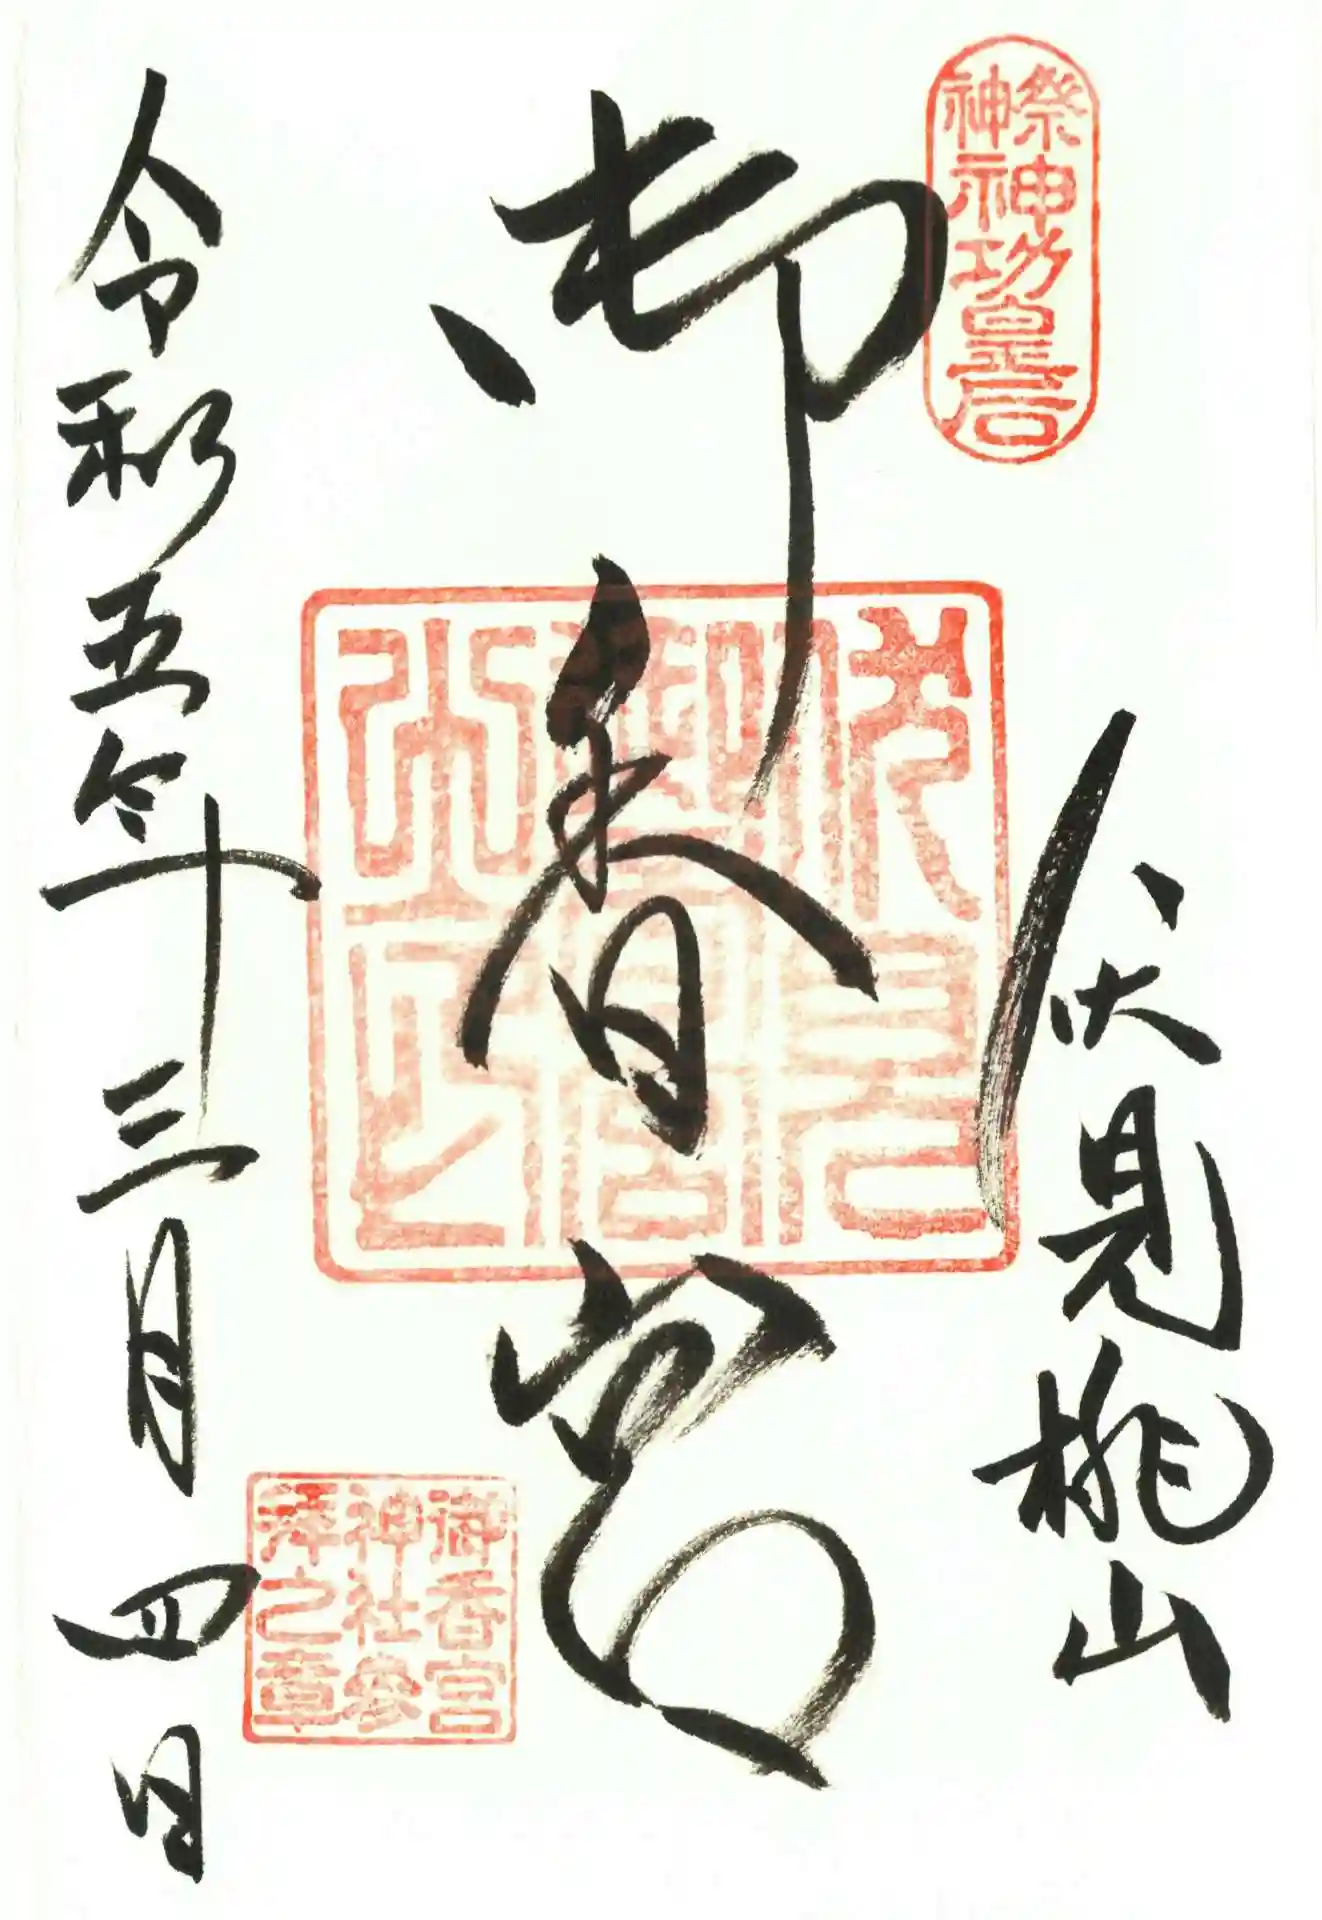 祭神
神功皇后
伏見桃山
御香宮
御香宮
神社参
拝之章
令和五年三月四日